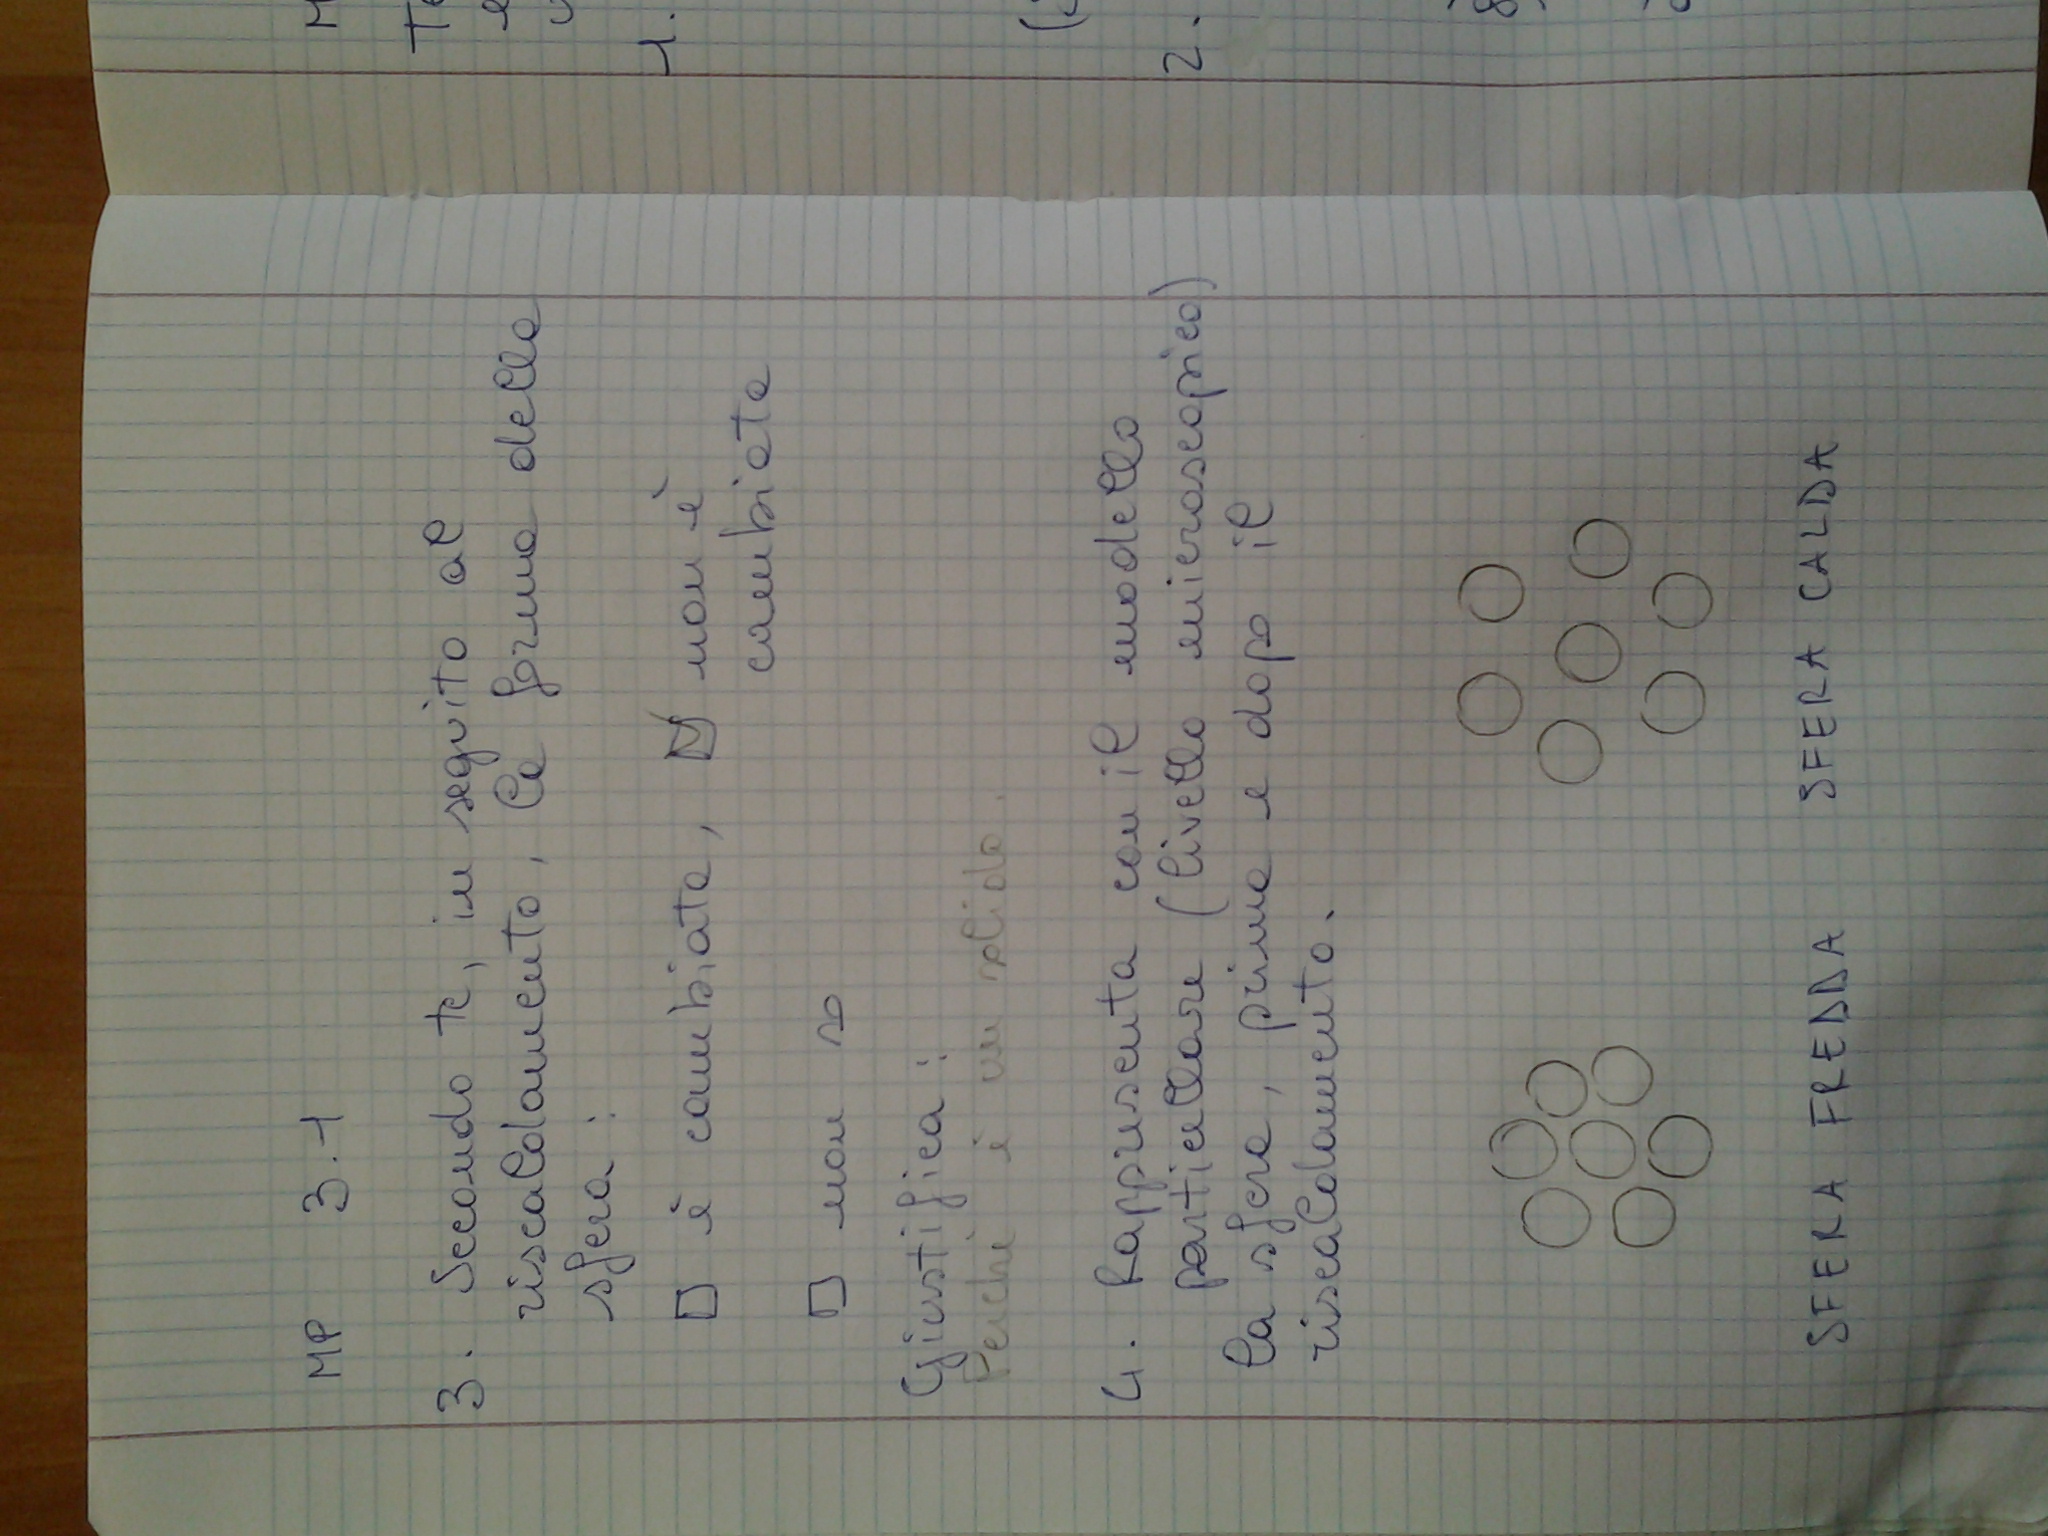 MP 3.1
3. Secondo te, in seguito al
riscaldamento, la forma della
sfera:
è cambiata, non è
cambiata
non so
Giustifica:
Perché è un solido.
4. Rappresenta con il modello
particellare (livello microscopico)
la sfera, prima e dopo il
riscaldamento.
SFERA FREDDA SFERA CALDA
1.
2.